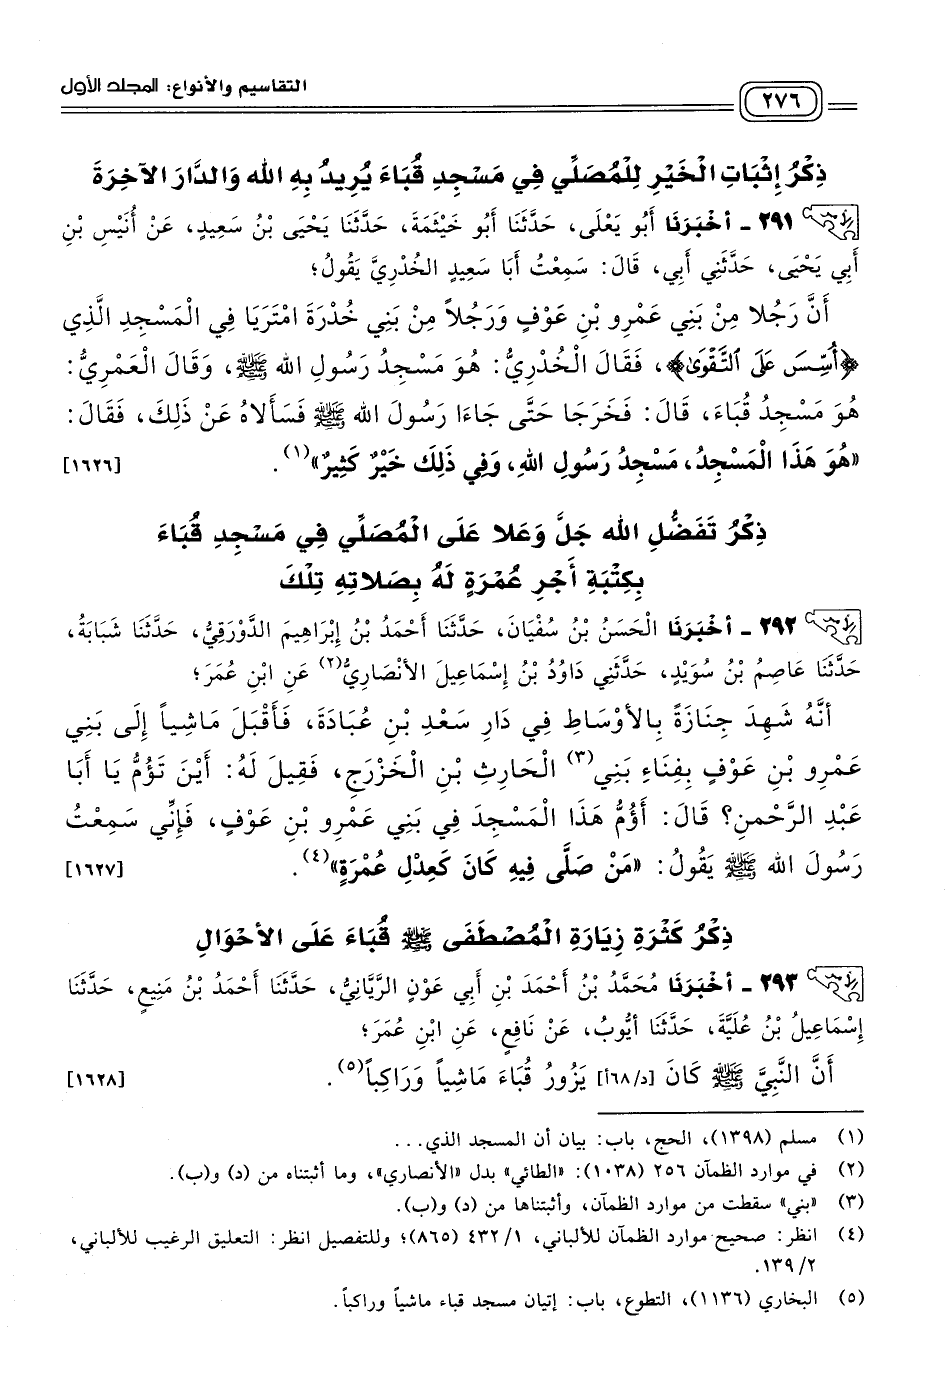 التقاسيم والأنواع: المجلد الأول
٢٧٦
ذِكْرُ إِثْبَاتِ الْخَيْرِ لِلْمُصَلِّي فِي مَسْجِدِ قُبَاءَ يُرِيدُ بِهِ الله وَالدَّارَ الآخِرَةَ
٢٩١ - أخْبَرَنَا أَبُو يَعْلَى، حَدَّثَنَا أَبُو خَيْثَمَةَ، حَدَّثَنَا يَحْيَى بْنُ سَعِيدٍ، عَنْ أُنَيْسِ بْنِ
أَبِي يَحْيَى، حَدَّثَنِي أَبِي، قَالَ: سَمِعْتُ أَبَا سَعِيدٍ الخُدْرِيَّ يَقُولُ؛
أَنَّ رَجُلا مِنْ بَنِي عَمْرِو بْنِ عَوْفٍ وَرَجُلاً مِنْ بَنِي خُدْرَةَ امْتَرَيَا فِي الْمَسْجِدِ الَّذِي
﴿أُسِّسَ عَلَى التَّقْوَىٰ﴾، فَقَالَ الْخُدْرِيُّ: هُوَ مَسْجِدُ رَسُولِ الله ﷺ، وَقَالَ الْعَمْرِيُّ:
هُوَ مَسْجِدُ قُبَاءَ، قَالَ: فَخَرَجَا حَتَّى جَاءَا رَسُولَ الله ﷺ فَسَأَلاهُ عَنْ ذَلِكَ، فَقَالَ:
«هُوَ هَذَا الْمَسْجِدُ، مَسْجِدُ رَسُولِ اللهِ، وَفِي ذَلِكَ خَيْرٌ كَثِيرٌ»(١). [١٦٢٦]
ذِكْرُ تَفَضُّلِ الله جَلَّ وَعَلا عَلَى الْمُصَلِّي فِي مَسْجِدِ قُبَاءَ
بِكِتْبَةِ أَجْرِ عُمْرَةٍ لَهُ بِصَلاتِهِ تِلْكَ
٢٩٢ - أخْبَرَنَا الْحَسَنُ بْنُ سُفْيَانَ، حَدَّثَنَا أَحْمَدُ بْنُ إِبْرَاهِيمَ الدَّوْرَقِيُّ، حَدَّثَنَا شَبَابَةُ،
حَدَّثَنَا عَاصِمُ بْنُ سُوَيْدٍ، حَدَّثَنِي دَاوُدُ بْنُ إِسْمَاعِيلَ الأنْصَارِيُّ(٢) عَنِ ابْنِ عُمَرَ؛
أنَّهُ شَهِدَ جِنَازَةً بِالأوْسَاطِ فِي دَارِ سَعْدِ بْنِ عُبَادَةَ، فَأَقْبَلَ مَاشِياً إِلَى بَنِي
عَمْرِو بْنِ عَوْفٍ بِفِنَاءِ بَنِي(٣) الْحَارِثِ بْنِ الْخَزْرَجِ، فَقِيلَ لَهُ: أَيْنَ تَؤُمُّ يَا أَبَا
عَبْدِ الرَّحْمنِ؟ قَالَ: أَؤُمُّ هَذَا الْمَسْجِدَ فِي بَنِي عَمْرِو بْنِ عَوْفٍ، فَإِنِّي سَمِعْتُ
رَسُولَ الله ﷺ يَقُولُ: «مَنْ صَلَّى فِيهِ كَانَ كَعِدْلِ عُمْرَةٍ»(٤). [١٦٢٧]
ذِكْرُ كَثْرَةِ زِيَارَةِ الْمُصْطَفَى ﷺ قُبَاءَ عَلَى الأحْوَالِ
٢٩٣ - أخْبَرَنَا مُحَمَّدُ بْنُ أَحْمَدَ بْنِ أَبِي عَوْنٍ الرَّيَّانِيُّ، حَدَّثَنَا أَحْمَدُ بْنُ مَنِيعٍ، حَدَّثَنَا
إِسْمَاعِيلُ بْنُ عُلَيَّةَ، حَدَّثَنَا أيُّوبُ، عَنْ نَافِعٍ، عَنِ ابْنِ عُمَرَ؛
أَنَّ النَّبِيَّ ﷺ كَانَ [د/٦٨أ] يَزُورُ قُبَاءَ مَاشِياً وَرَاكِباً(٥). [١٦٢٨]
(١) مسلم (١٣٩٨)، الحج، باب: بيان أن المسجد الذي...
(٢) في موارد الظمآن ٢٥٦ (١٠٣٨): «الطائي» بدل «الأنصاري»، وما أثبتناه من (د) و(ب).
(٣) «بني» سقطت من موارد الظمآن، وأثبتناها من (د) و(ب).
(٤) انظر: صحيح موارد الظمآن للألباني، ١/ ٤٣٢ (٨٦٥)؛ وللتفصيل انظر: التعليق الرغيب للألباني،
٢/ ١٣٩.
(٥) البخاري (١١٣٦)، التطوع، باب: إتيان مسجد قباء ماشياً وراكباً.